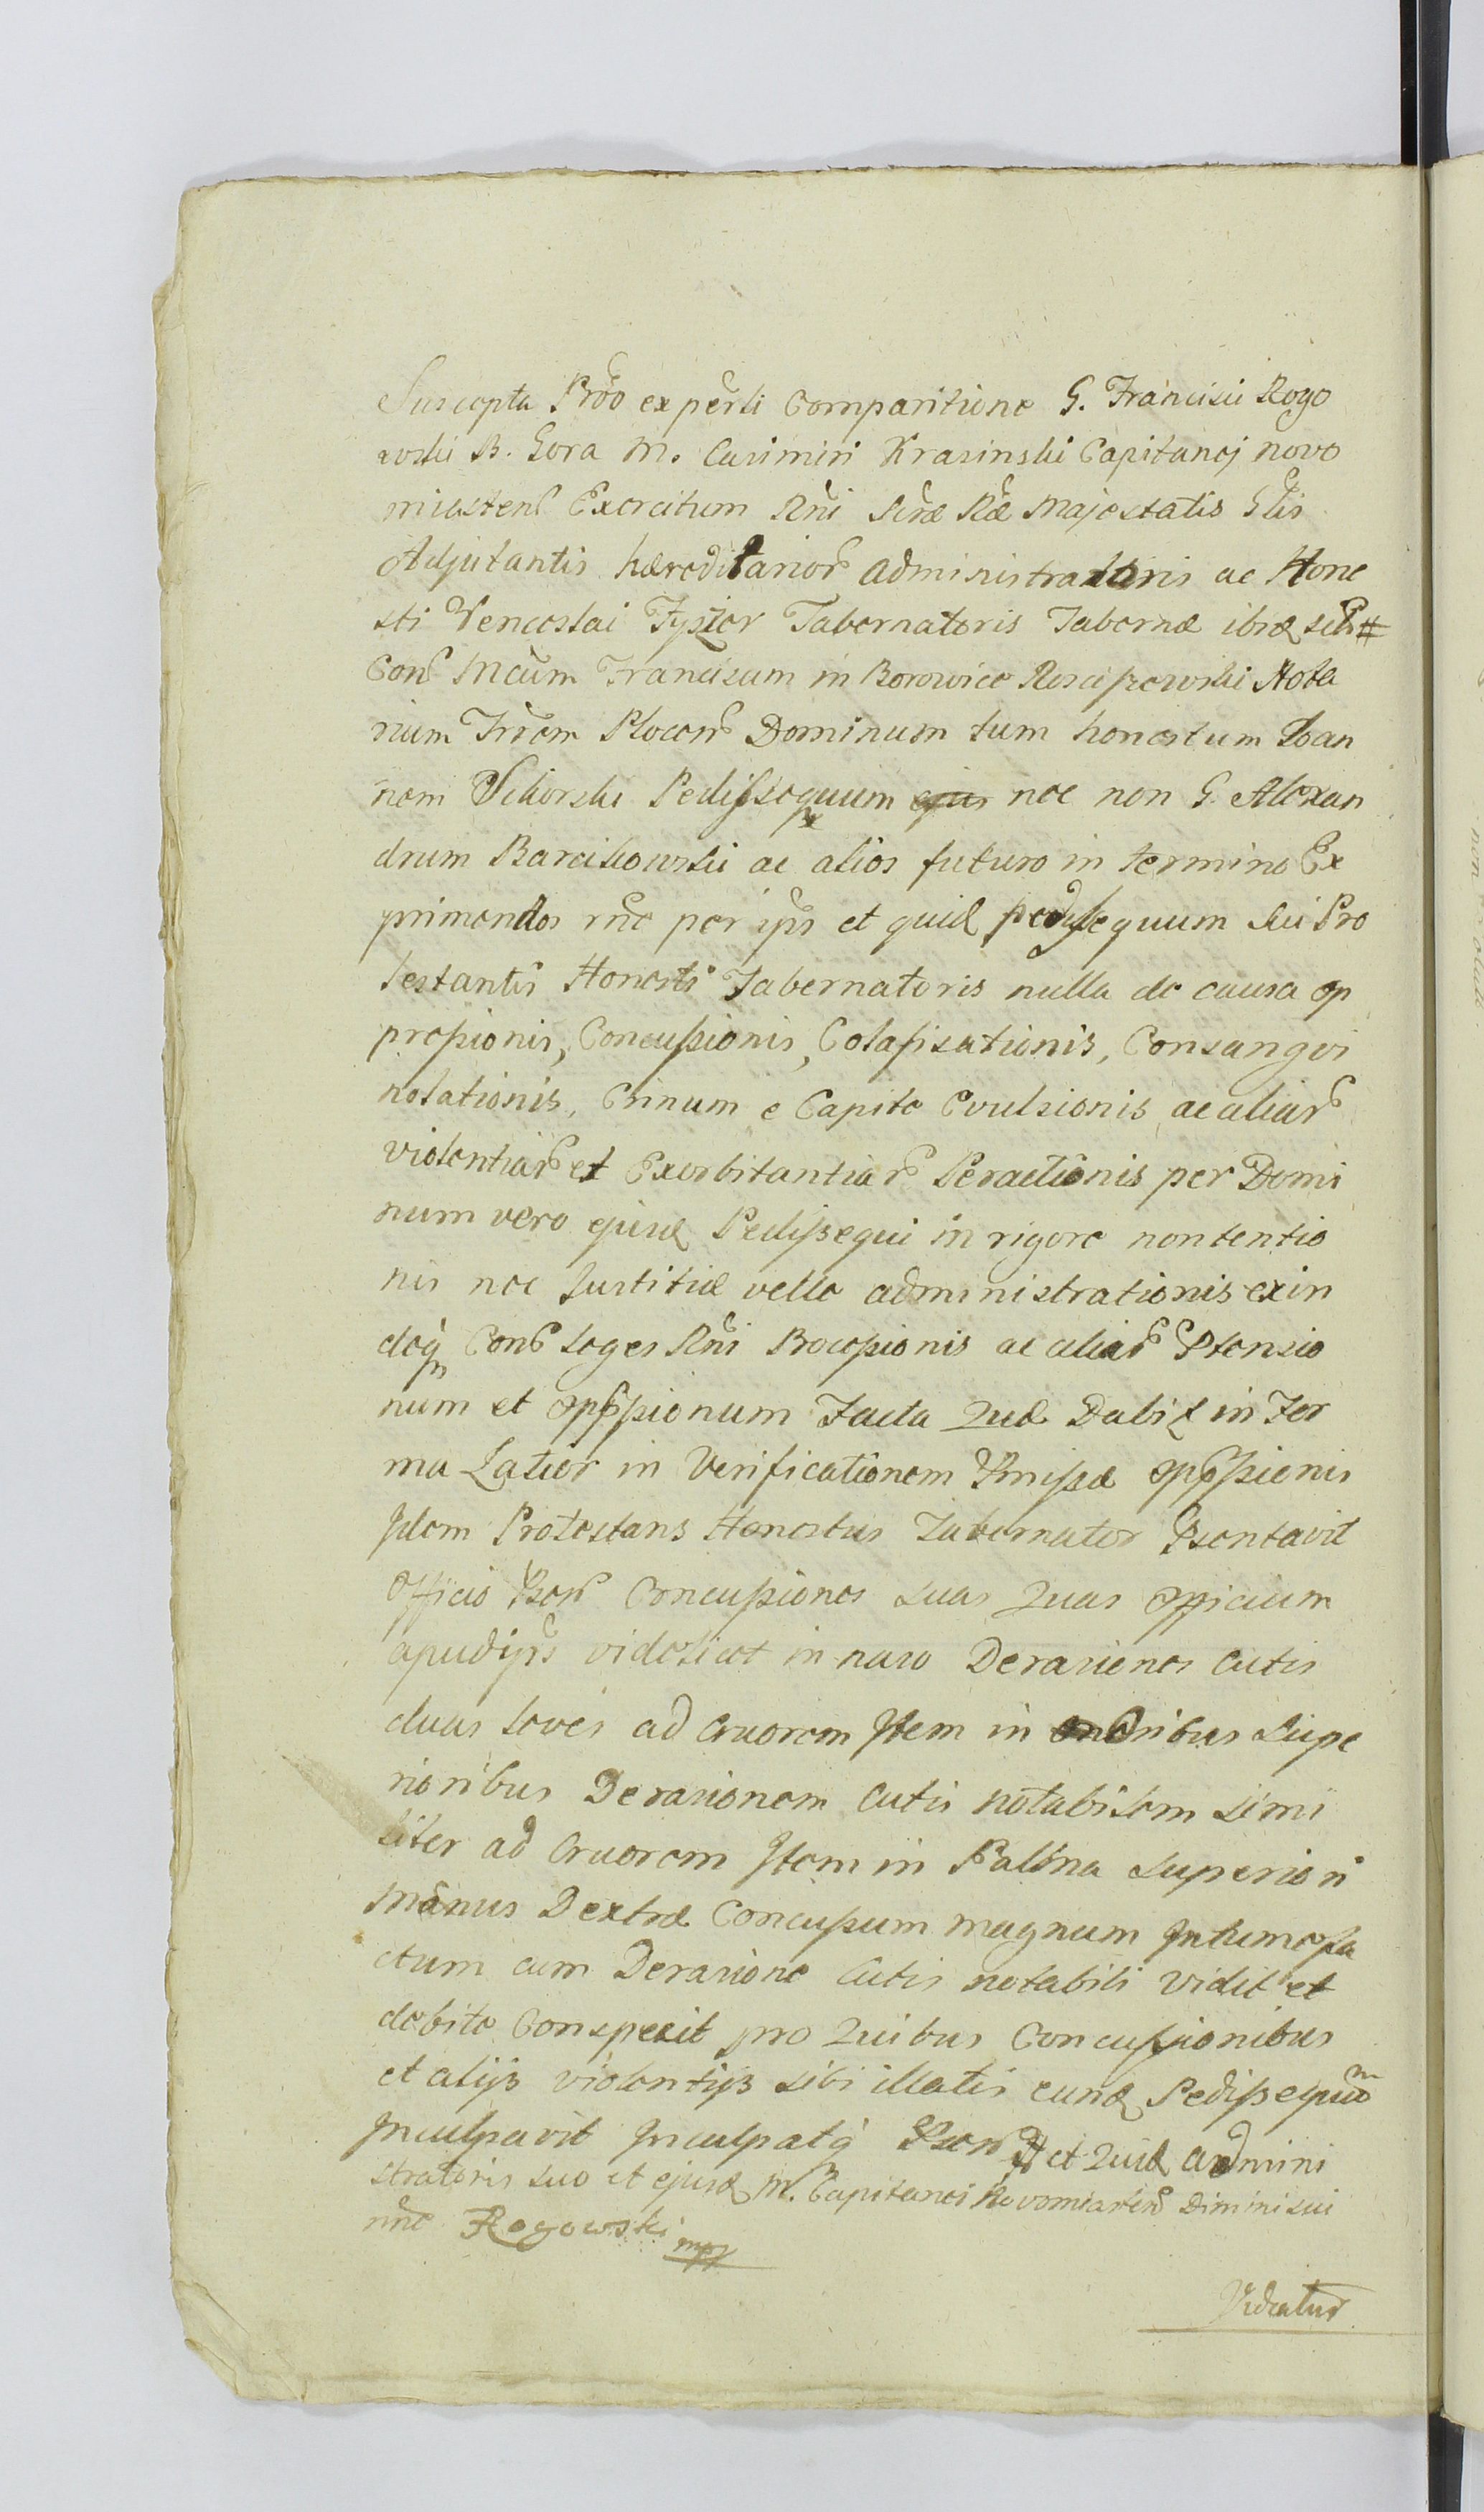 Suscepta Prõo ex pẽrsli Comparitione G. Francisci Rogo
wski B. Gora M. Casimiri Krasinski Capitanej novo
miesten Exercitum Rñi Sẽræ Ræ Majestatis Glis
Adjutantis hæreditarior administratoris ac Hone
sti Venceslai Tabernatoris Tabernæ ibiq #
Con Mcum Franciscum in Borowice Rosciszewski Nota
rium Trrem Plocen Dominum tum honestum Ioan
nem Sikorski Pedissequum nec non G. Alexan
drum Barcikowski ac alios futuro in termino Ex
primendos rñe per ips et quid pedissequum sui Pro
testantis Honesti Tabernatoris nulla de causa op
pressionis, Concussionis, Colafisationis, Consangvi
nolationis, Crinum e Capite Evulsionis, ac aliar
violentiar et Exorbitantiar Peractionis per Domi
num vero ejusd Pedissequi in rigore non tentio
nis nec Justitiæ velle administrationis exin
deq Con leges Rñi Processionis ac aliar Ptensio
num et oppssionum Facta Quæ Dabit in For
ma Latior in Verificationem Pmissæ oppssionis
Idem Protestans Honestus Tabernator Psentavit
Officio Psen Concussiones suas Quas Officium
apud ips videlicet in naso Derasiones Cutis
duas leves ad Cruorem Item in supe
rioribus Derasionem Cutis notabilem simi
liter ad Cruorem Item in Palma superiori
Manus Dextræ Concussum magnum Intumefa
ctum cum Derasione Cutis notabili vidit et
debite Conspexit pro Quibus Concussionibus
et alijs violentijs sibi illatis eund Pedissequum
Inculpavit Inculpatq Psen # et Quid admini
stratoris suo et ejusd M. Capitanei Novomiasten Dimini sui
nñe Rogowski mpp
Videatur